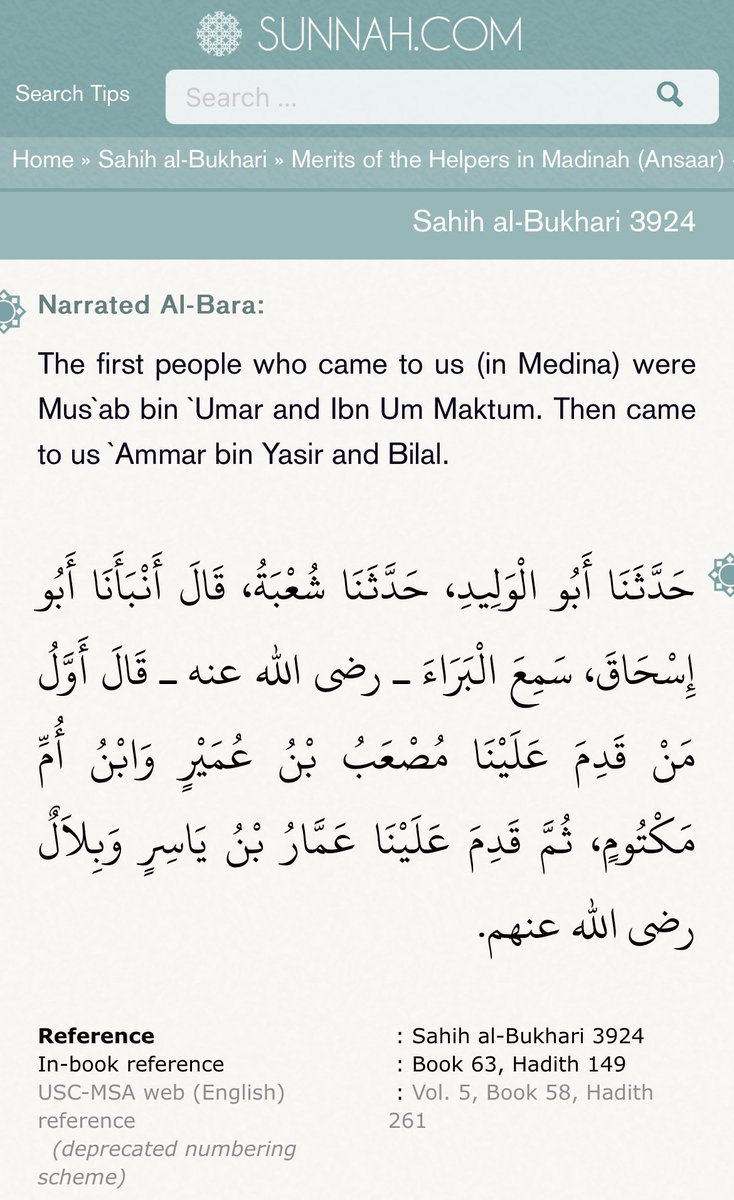 SUNNAH.COM
Search Tips
Search ...
Home » Sahih al-Bukhari » Merits of the Helpers in Madinah (Ansaar)
Sahih al-Bukhari 3924
Narrated Al-Bara:
The first people who came to us (in Medina) were
Mus`ab bin `Umar and Ibn Um Maktum. Then came
to us `Ammar bin Yasir and Bilal.
حَدَّثَنَا أَبُو الْوَلِيدِ، حَدَّثَنَا شُعْبَةُ، قَالَ أَنْبَأَنَا أَبُو
إِسْحَاقَ، سَمِعَ الْبَرَاءَ ـ رضى الله عنه ـ قَالَ أَوَّلُ
مَنْ قَدِمَ عَلَيْنَا مُصْعَبُ بْنُ عُمَيْرٍ وَابْنُ أُمِّ
مَكْتُومٍ، ثُمَّ قَدِمَ عَلَيْنَا عَمَّارُ بْنُ يَاسِرٍ وَبِلاَلٌ
رضى الله عنهم‏.‏
Reference : Sahih al-Bukhari 3924
In-book reference : Book 63, Hadith 149
USC-MSA web (English) : Vol. 5, Book 58, Hadith
reference 261
(deprecated numbering
scheme)